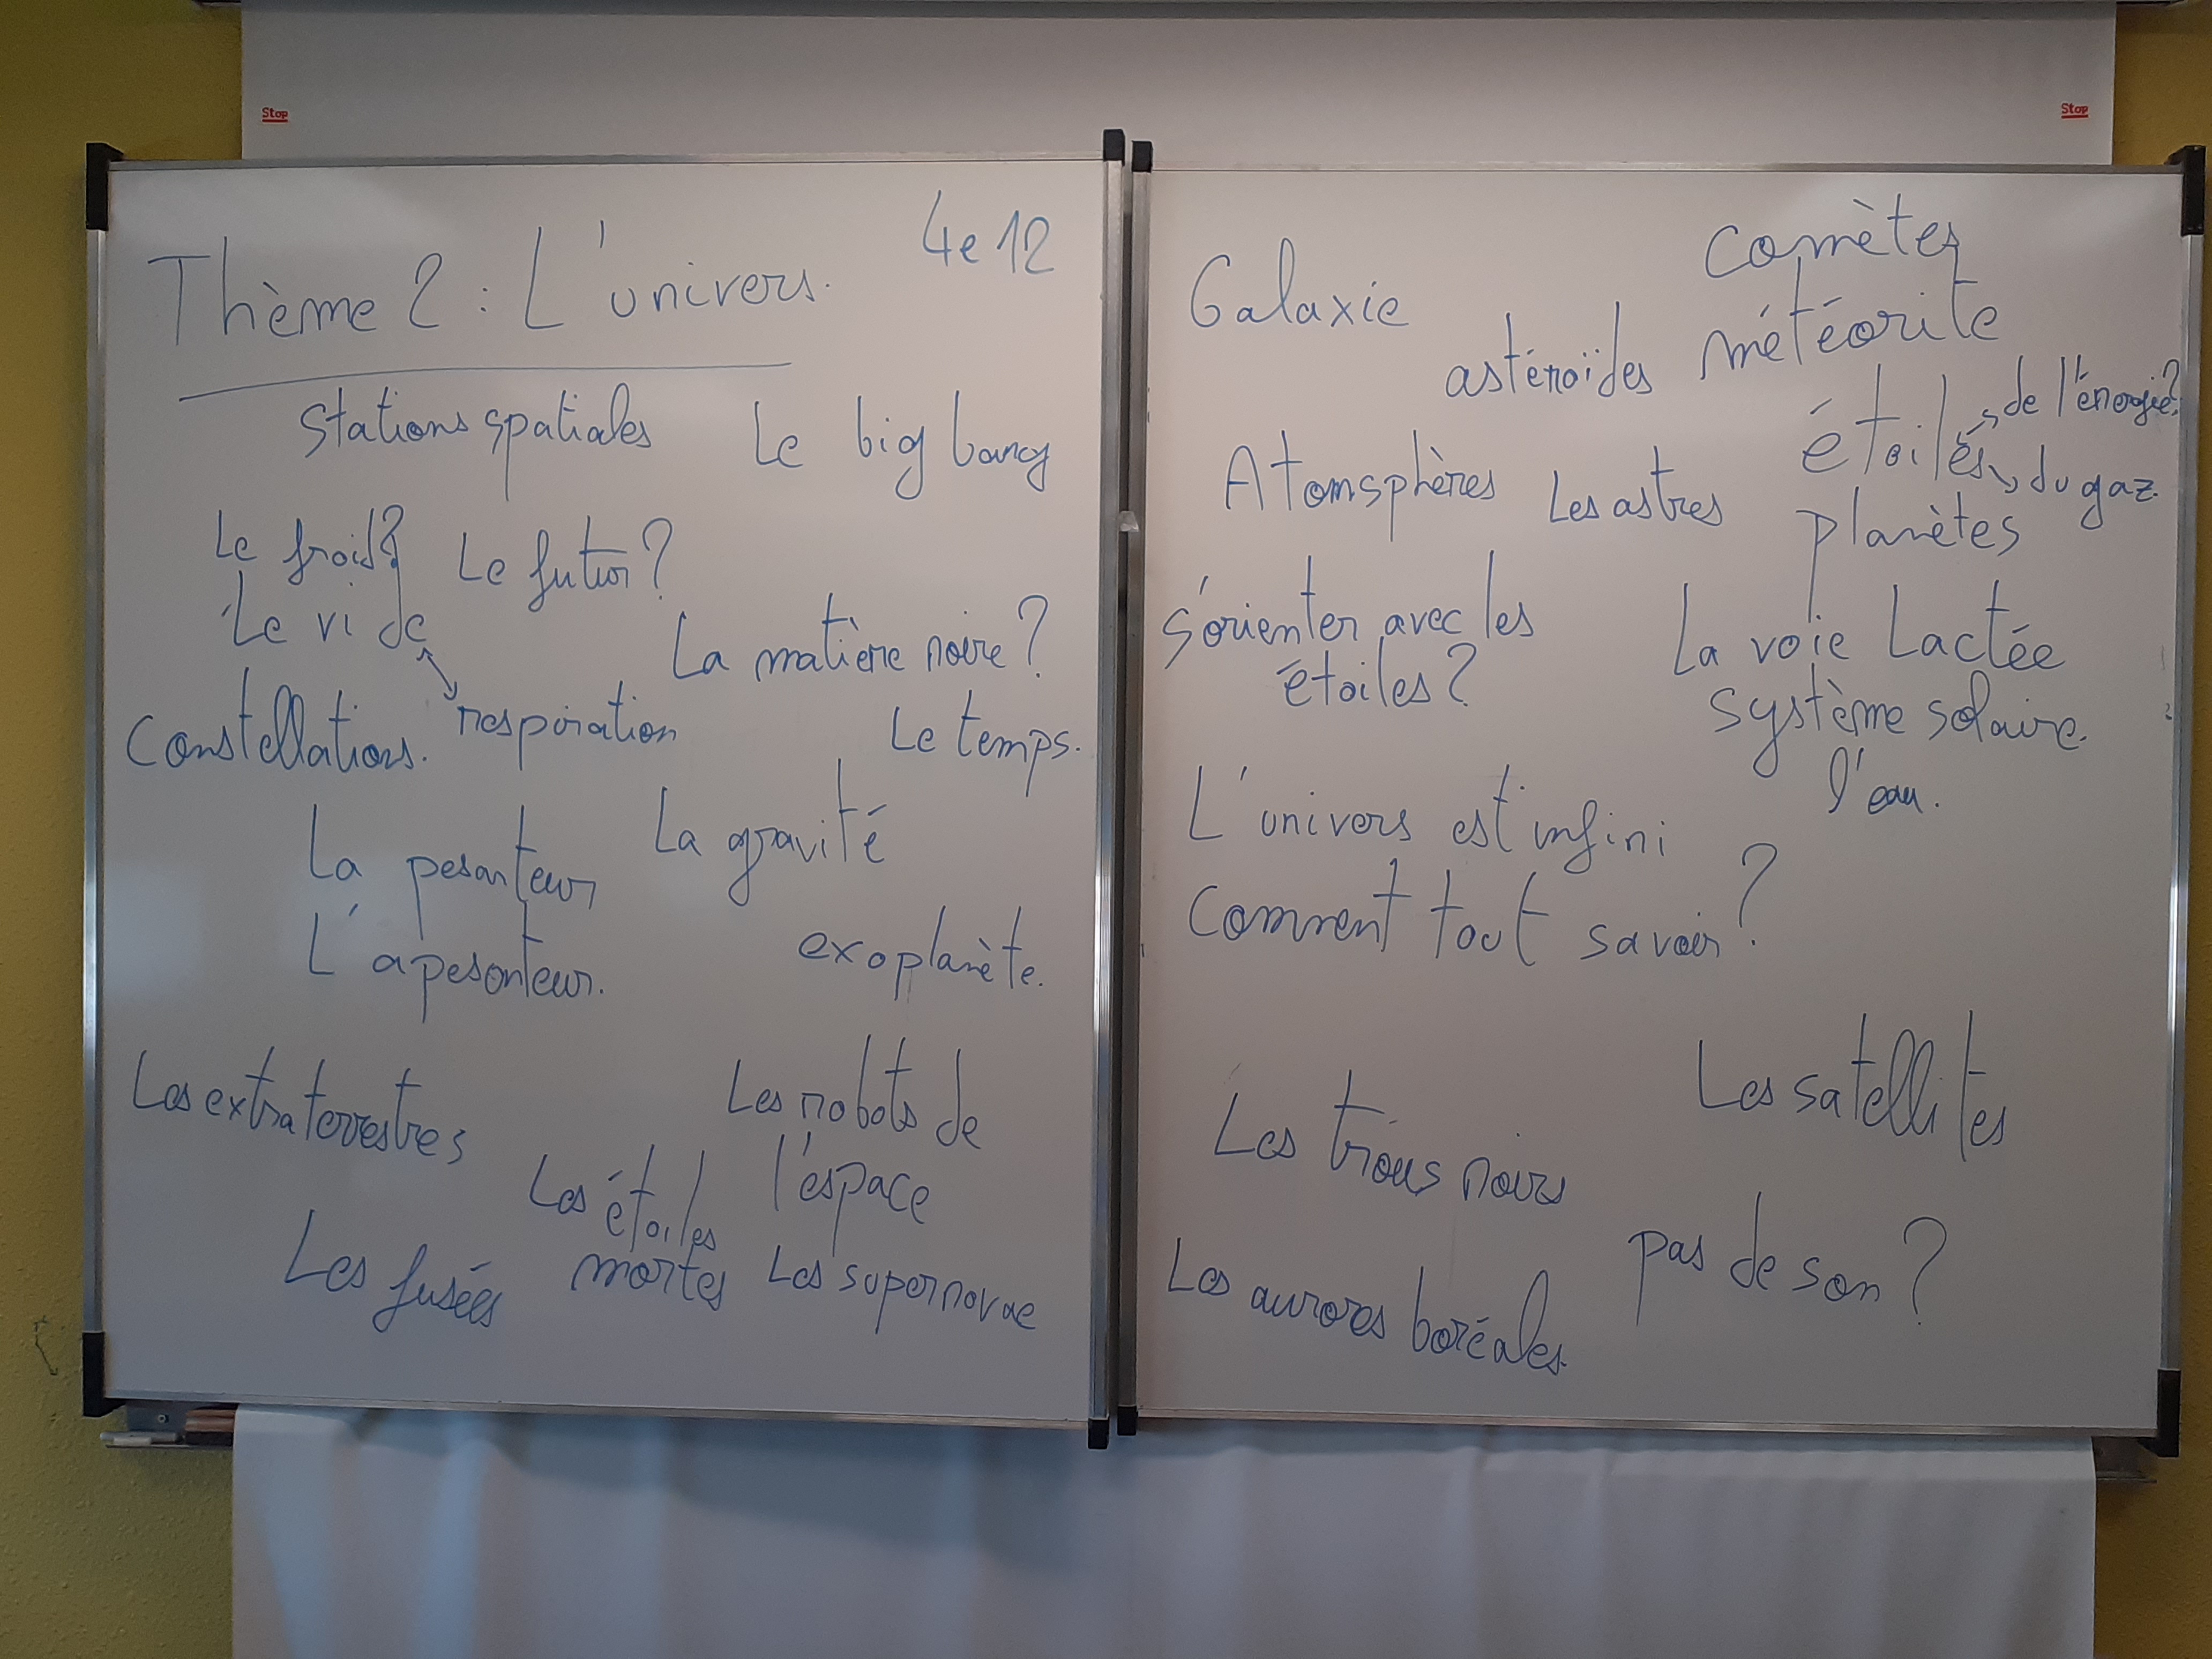 Stop
Stop
4e12
Thème 2 : L'univers.
Stations spatiales
Le big bang
Le froid?
Le futur?
Le vide
La matière noire?
respiration
Constellations.
Le temps.
La pesanteur
La gravité
L'apesanteur.
exoplanète.
Les extraterrestres
Les robots de
l'espace
Les étoiles
mortes
Les fusées
Les supernovae
Galaxie
comètes
astéroïdes
météorite
étoiles
de l'énergie?
du gaz.
Atomsphères
Les astres
planètes
s'orienter avec les
étoiles?
La voie Lactée
système solaire.
l'eau.
L'univers est infini
Comment tout savoir?
Les satellites
Les trous noirs
pas de son?
Les aurores boréales.